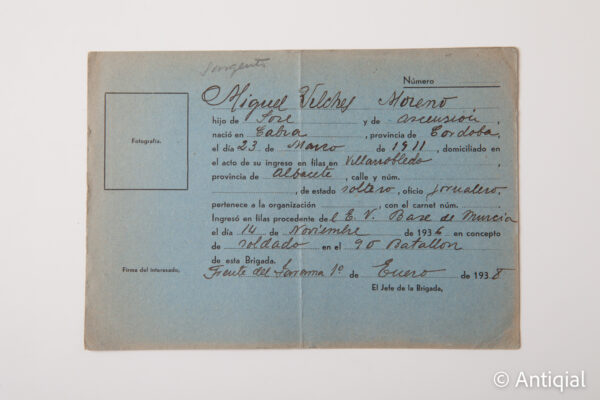 Sargento
Número
Miguel Vilches Moreno
Fotografía.
hijo de José y de ascensión,
nació en Cabra, provincia de Cordoba,
el día 23 de Marzo de 1911, domiciliado en
el acto de su ingreso en filas en Villarrobledo,
provincia de Albacete, calle y núm.
, de estado soltero, oficio jornalero,
pertenece a la organización, con el carnet núm.
Ingresó en filas procedente del E. V. Base de Murcia
el día 14 de Noviembre de 1936 en concepto
de soldado en el 90 Batallon
de esta Brigada.
Firma del interesado,
Frente del Jarama 1º de Enero de 1938
El Jefe de la Brigada,
© Antiqial